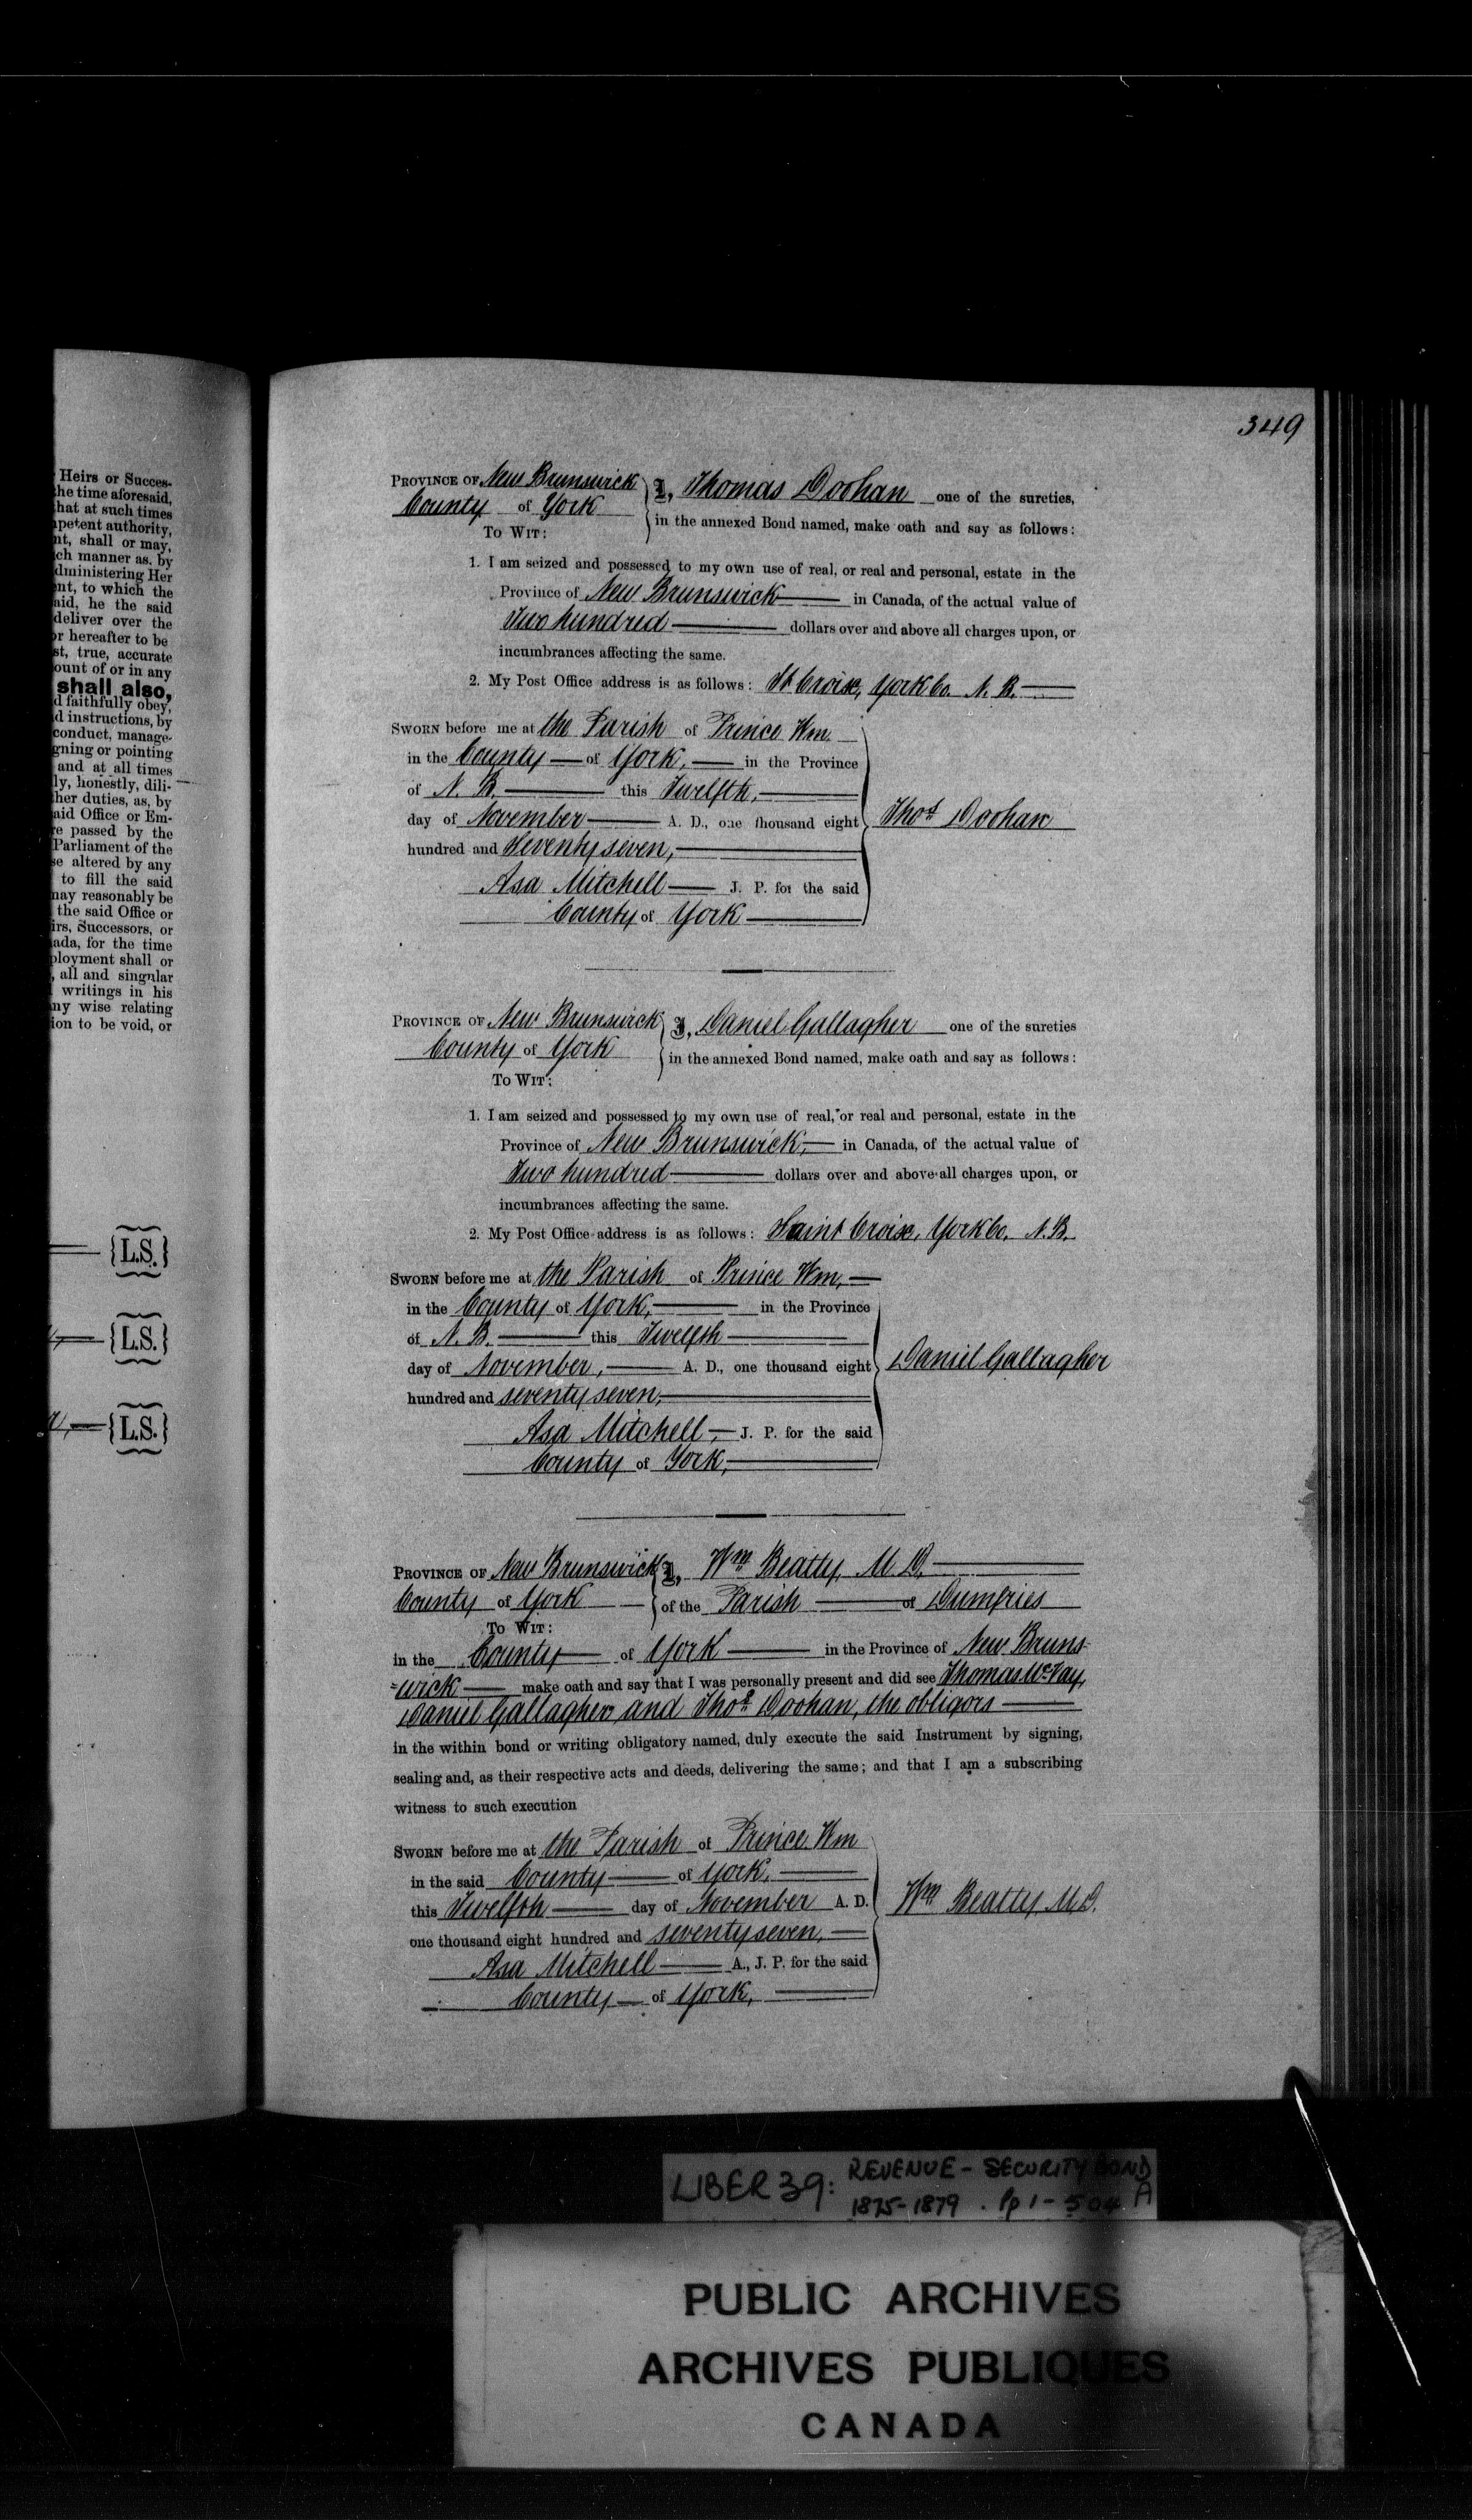 Heirs or Succes-
the time aforesaid,
that at such times
petent authority,
nt, shall or may,
ch manner as, by
dministering Her
nt, to which the
aid, he the said
deliver over the
or hereafter to be
st, true, accurate
ount of or in any
shall also,
d faithfully obey,
d instructions, by
conduct, manage-
gning or pointing
and at all times
ly, honestly, dili-
her duties, as, by
aid Office or Em-
re passed by the
Parliament of the
se altered by any
to fill the said
may reasonably be
the said Office or
irs, Successors, or
ada, for the time
ployment shall or
, all and singular
writings in his
ny wise relating
ion to be void, or
{L.S.}
{L.S.}
{L.S.}
349
PROVINCE OF New Brunswick I, Thomas Doohan one of the sureties,
County of York in the annexed Bond named, make oath and say as follows:
TO WIT:
1. I am seized and possessed to my own use of real, or real and personal, estate in the
Province of New Brunswick in Canada, of the actual value of
Two hundred dollars over and above all charges upon, or
incumbrances affecting the same.
2. My Post Office address is as follows: St Croix, York Co. N. B.
SWORN before me at the Parish of Prince Wm.
in the County of York, in the Province
of N. B. this Twelfth,
day of November A. D., one thousand eight Thos Doohan
hundred and Seventy seven,
Asa Mitchell J. P. for the said
County of York
PROVINCE OF New Brunswick I, Daniel Gallagher one of the sureties
County of York in the annexed Bond named, make oath and say as follows:
TO WIT:
1. I am seized and possessed to my own use of real, or real and personal, estate in the
Province of New Brunswick, in Canada, of the actual value of
Two hundred dollars over and above all charges upon, or
incumbrances affecting the same.
2. My Post Office address is as follows: Saint Croix, York Co. N. B.
SWORN before me at the Parish of Prince Wm,
in the County of York, in the Province
of N. B. this Twelfth
day of November, A. D., one thousand eight Daniel Gallagher
hundred and seventy seven,
Asa Mitchell, J. P. for the said
County of York,
PROVINCE OF New Brunswick I, Wm Beatty, M. D.
County of York of the Parish of Dumfries
TO WIT:
in the County of York in the Province of New Bruns-
-wick make oath and say that I was personally present and did see Thomas McVay,
Daniel Gallagher and Thos Doohan, the obligors
in the within bond or writing obligatory named, duly execute the said Instrument by signing,
sealing and, as their respective acts and deeds, delivering the same; and that I am a subscribing
witness to such execution
SWORN before me at the Parish of Prince Wm
in the said County of York,
this Twelfth day of November A. D. Wm Beatty, M.D.
one thousand eight hundred and seventy seven,
Asa Mitchell A., J. P. for the said
County of York,
LIBER 39: REVENUE - SECURITY BOND
1875-1879 . Pp 1 - 504 A
PUBLIC ARCHIVES
ARCHIVES PUBLIQUES
CANADA